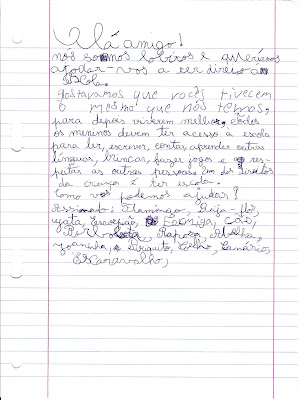 Olá amigo!
nós somos lobitos e queríamos
ajudar-vos a ter direito à
escola.
gostavamos que vocês tivecem
o mesmo que nós temos,
para depois viverem melhor, todos
os meninos devem ter acesso à escola
para ler, escrever, contar, aprender outras
línguas, brincar, fazer jogos e res-
peitar as outras pessoas. Um dos direitos
da criança é ter escola.
Como vos podemos ajudar?
Assinado: Flamingo, Beija-flôr,
gata, Formiga,
Borboleta, Raposa, Abelha,
Joaninha, Periquito, Coelho, Canário,
Escaravalho,